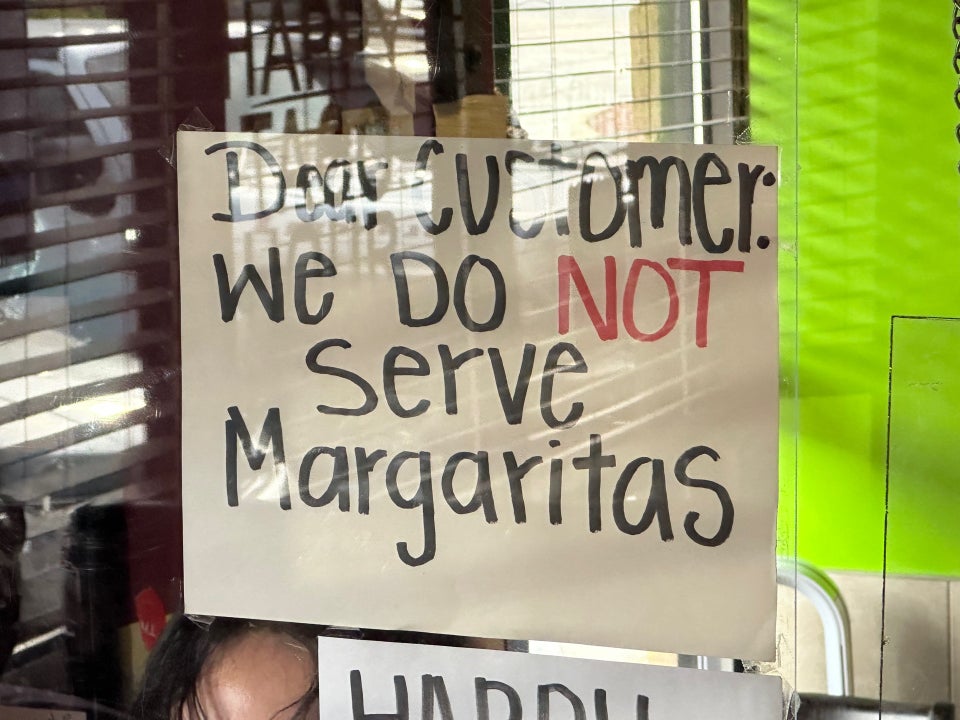 Dear Customer:
We DO NOT
Serve
Margaritas
HAPPY